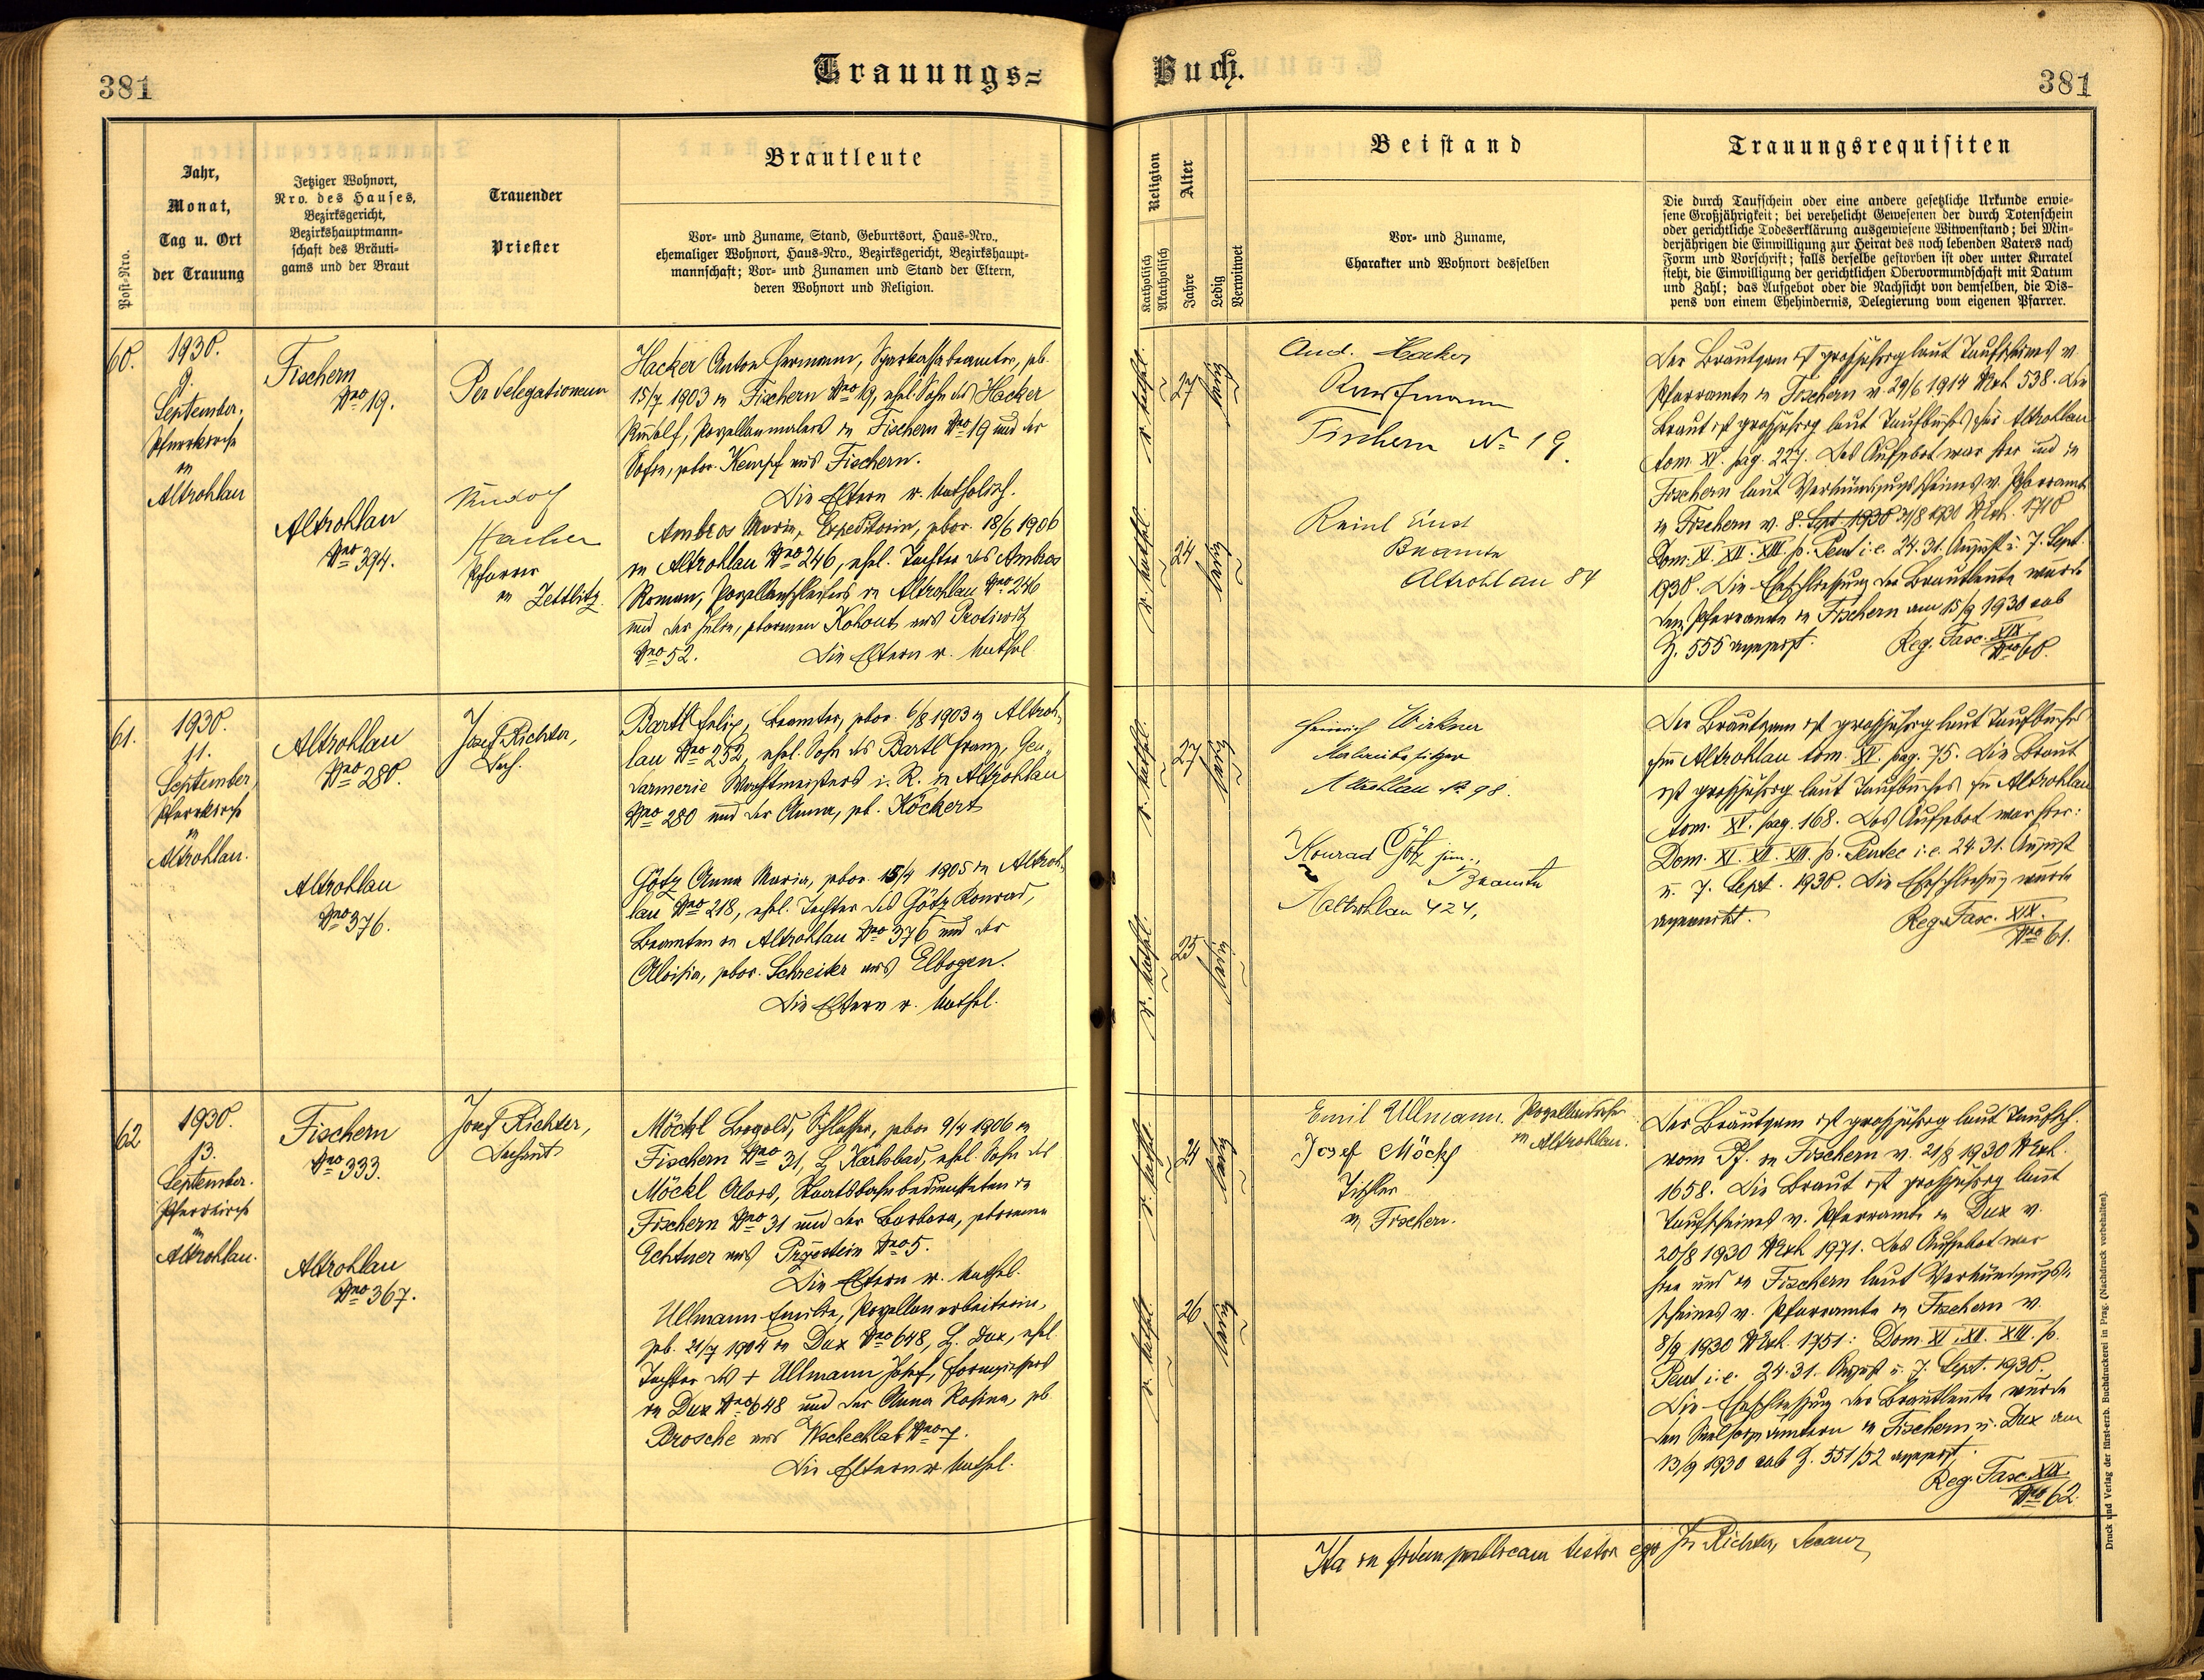 381
Trauungs=
Jahr,
Monat,
Tag u. Ort
der Trauung
Post-Nro.
Jetziger Wohnort,
Nro. des Hauses,
Bezirksgericht,
Bezirkshauptmann-
schaft des Bräuti-
gams und der Braut
Trauender
Priester
Brautleute
Vor- und Zuname, Stand, Geburtsort, Haus-Nro.,
ehemaliger Wohnort, Haus-Nro., Bezirksgericht, Bezirkshaupt-
mannschaft; Vor- und Zunamen und Stand der Eltern,
deren Wohnort und Religion.
60.
1930.
9.
September,
Pfarrkirche
in
Altrohlau
Fischern
Nro 19.
Altrohlau
Nro 394.
Per delegationem
Rudolf
Hacker
Pfarrer
in Zettlitz.
Hacker Anton Hermann, Sparkassabeamter, geb.
15/7 1903 in Fischern Nro 19, ehel. Sohn des Hacker
Rudolf, Porzellanmalers in Fischern Nro 19 und der
Sofie, gebor. Kempf aus Fischern.
Die Eltern r. katholisch.
Ambros Maria, Expeditorin, gebor. 18/6 1906
in Altrohlau Nro 246, ehel. Tochter des Ambros
Roman, Porzellanschleifers in Altrohlau Nro 246
und der Julie, geborenen Kohout aus Protiwitz
Nro 52. Die Eltern r. kathol.
61.
1930.
11.
September,
Pfarrkirche
in
Altrohlau.
Altrohlau
Nro 280.
Altrohlau
Nro 376.
Josef Richter,
Dech.
Bartl Felix, Beamter, gebor. 6/8 1903 in Altroh-
lau Nro 252, ehel. Sohn des Bartl Franz, Gen-
darmerie Wachtmeisters i. R. in Altrohlau
Nro 280 und der Anna, geb. Köckert
Götz Anna Maria, gebor. 15/4 1905 in Altroh-
lau Nro 218, ehel. Tochter des Götz Konrad,
Beamten in Altrohlau Nro 376 und der
Aloisia, gebor. Schreiter aus Elbogen.
Die Eltern r. kathol.
62
1930.
13.
September.
Pfarrkirche
in
Altrohlau.
Fischern
Nro 333.
Altrohlau
Nro 367.
Josef Richter,
Dechant
Möckl Leopold, Schlosser, gebor 9/4 1906 in
Fischern Nro 31, B. Karlsbad, ehel. Sohn des
Möckl Alois, Staatsbahnbediensteten in
Fischern Nro 31 und der Barbara, geborenen
Echtner aus Nro 5.
Die Eltern r. kathol.
Ullmann Emilie, Porzellanarbeiterin,
geb. 21/7 1904 in Dux Nro 648, B. Dux, ehel.
Tochter des + Ullmann Josef, Formgiessers
in Dux Nro 648 und der Anna Rosina, geb.
Brosche aus Wschechlab Nro 7.
Die Eltern r. kathol.
Buch.
381
Religion
Katholisch
Akatholisch
Alter
Jahre
Ledig
Verwitwet
Beistand
Vor- und Zuname,
Charakter und Wohnort desselben
Trauungsrequisiten
Die durch Taufschein oder eine andere gesetzliche Urkunde erwie-
sene Großjährigkeit; bei verehelicht Gewesenen der durch Totenschein
oder gerichtliche Todeserklärung ausgewiesene Witwenstand; bei Min-
derjährigen die Einwilligung zur Heirat des noch lebenden Vaters nach
Form und Vorschrift; falls derselbe gestorben ist oder unter Kuratel
steht, die Einwilligung der gerichtlichen Obervormundschaft mit Datum
und Zahl; das Aufgebot oder die Nachsicht von demselben, die Dis-
pens von einem Ehehindernis, Delegierung vom eigenen Pfarrer.
r. kathol.
27
ledig
And. Hacker
Kaufmann
Fischern No 19.
r. kathol.
24
ledig
Reinl Ernst
Beamte
Altrohlau 84
Der Bräutigam ist grossjährig laut Taufscheines v.
Pfarramte in Fischern v. 29/6 1914 Nrexh. 538. Die
Braut ist grossjährig laut Taufbuches für Altrohlau
tom. XV. pag. 227. Das Aufgebot war hier und in
Fischern laut Verkündigungsscheines v. Pfarramte
in Fischern v. 8. Sept 1930 31/8 1930 Nrexh. 1710
Dom. XI. XII. XIII. p. Pent i. e. 24. 31. August u. 7. Sept.
1930. Die Eheschliessung der Brautleute wurde
dem Pfarramte in Fischern am 15/9 1930 sub
Z. 555 angezeigt. Reg. Fasc. XIX
Nro 60.
r. kathol.
27
ledig
Heinrich Wirkner
Altrohlau No 98.
r. kathol.
25
ledig
Konrad Götz jun.,
Beamte
Altrohlau 424,
Der Bräutigam ist grossjährig laut Taufbuches
für Altrohlau tom. XV. pag. 75. Die Braut
ist grossjährig laut Taufbuches für Altrohlau
tom. XV. pag. 168. Das Aufgebot war hier:
Dom. XI. XII. XIII. p. Pentec i. e. 24. 31. August
u. 7. Sept. 1930. Die Eheschliessung wurde
angemerkt. Reg. Fasc. XIX.
Nro 61.
r. kathol.
24
ledig
Emil Ullmann. Porzellandreher
in Altrohlau.
Josef Möckl
Tischler
in Fischern.
r. kathol.
26
ledig
Der Bräutigam ist grossjährig laut Taufsch.
vom Pf. in Fischern v. 21/8 1930 Nrexh.
1658. Die Braut ist grossjährig laut
Taufscheines v. Pfarramte in Dux v.
20/8 1930 Nrexh 1971. Das Aufgebot war
hier und in Fischern laut Verkündigungs-
scheines v. Pfarramte in Fischern v.
8/9 1930 Nrexh. 1751: Dom. XI. XII. XIII. p.
Pent i. e. 24. 31. August u. 7. Sept. 1930.
Die Eheschliessung der Brautleute wurde
den Seelsorgeämtern in Fischern u. Dux am
13/9 1930 sub Z. 551/52 angezeigt.
Reg. Fasc. XIX.
Nro 62.
Ita in fidem publicam testor ego Jos Richter, Decanus
Druck und Verlag der fürst-erzb. Buchdruckerei in Prag. (Nachdruck vorbehalten).